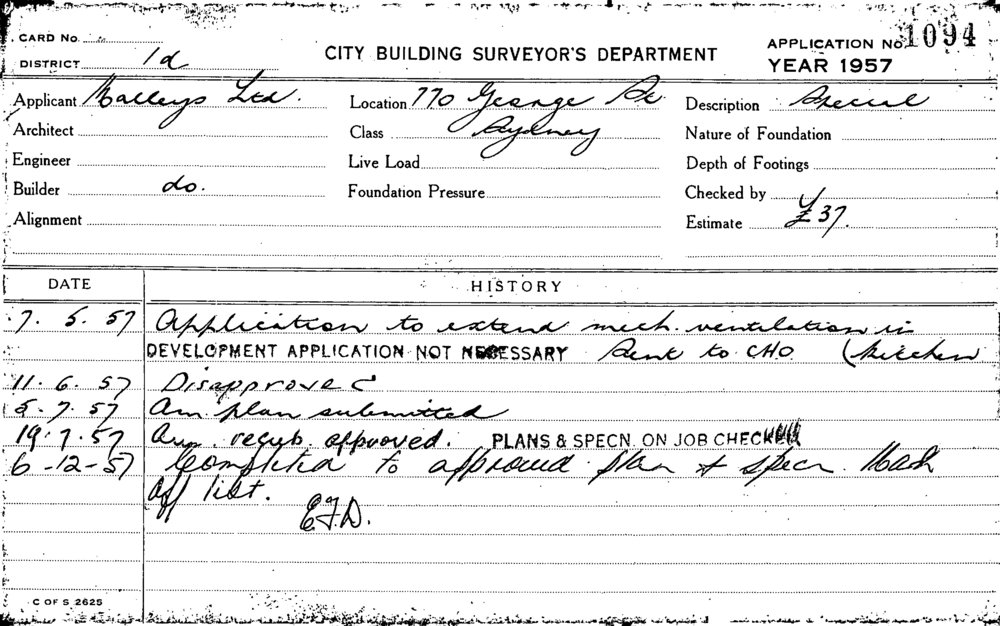 CARD No.
APPLICATION No. 1094
DISTRICT 1d
CITY BUILDING SURVEYOR'S DEPARTMENT
YEAR 1957
Applicant Malleys Ltd. Location 770 George St Description Special
Architect Class Sydney Nature of Foundation
Engineer Live Load Depth of Footings
Builder do. Foundation Pressure Checked by
Alignment Estimate £37.
DATE HISTORY
7. 5. 57 Application to extend mech. ventilation in
DEVELOPMENT APPLICATION NOT NECESSARY Sent to CHO (kitchen
11. 6. 57 Disapproved
5. 7. 57 Am. plan submitted
19. 7. 57 Am. resub. approved. PLANS & SPECN. ON JOB CHECKED
6-12-57 Completed to approved plan & specn. Mark
off list.
E.J.D.
C OF S 2625